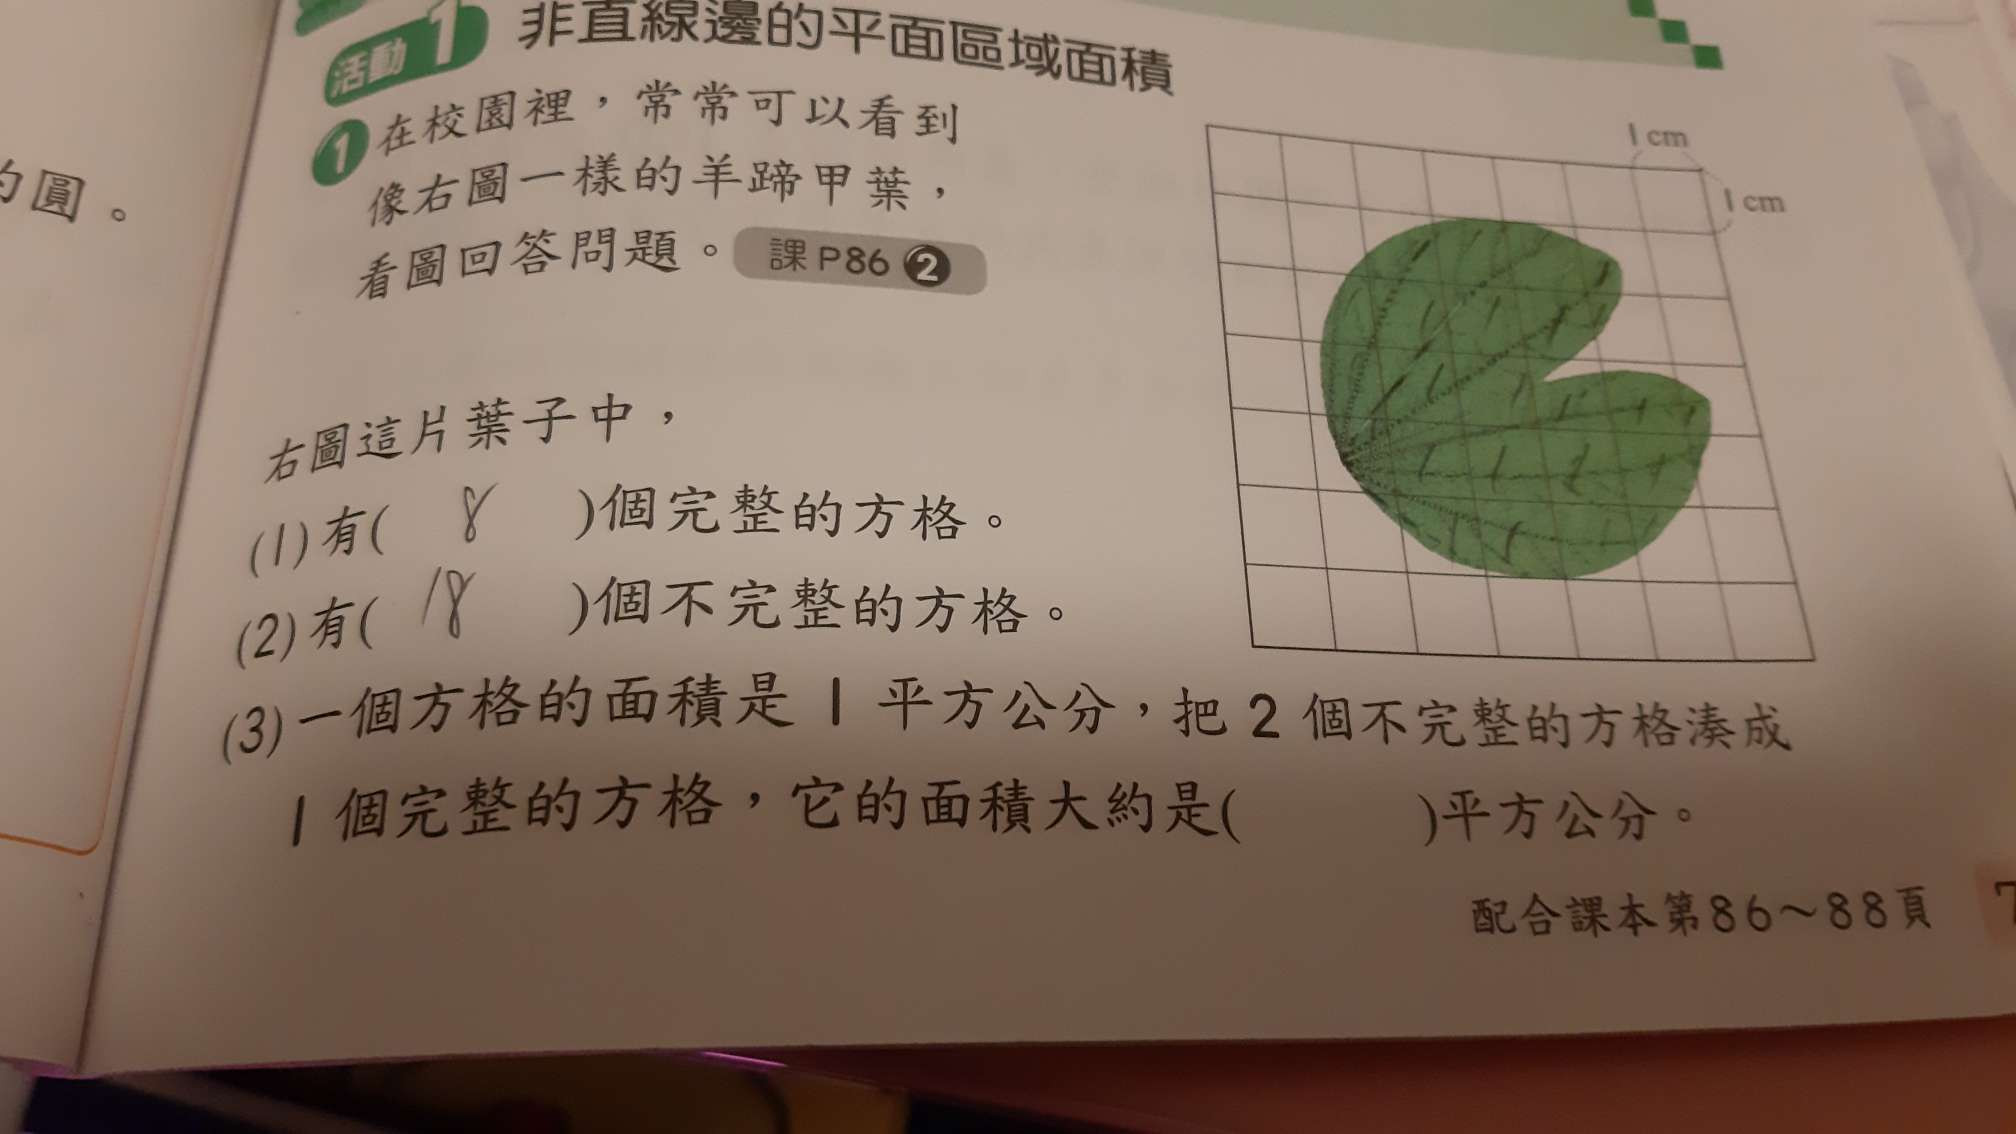 活動 1 非直線邊的平面區域面積
的圓。
1 在校園裡，常常可以看到
像右圖一樣的羊蹄甲葉，
看圖回答問題。 課P86 2
1 cm
1 cm
右圖這片葉子中，
(1)有( 8 )個完整的方格。
(2)有( 18 )個不完整的方格。
(3)一個方格的面積是 1 平方公分，把 2 個不完整的方格湊成
1 個完整的方格，它的面積大約是( )平方公分。
配合課本第86～88頁